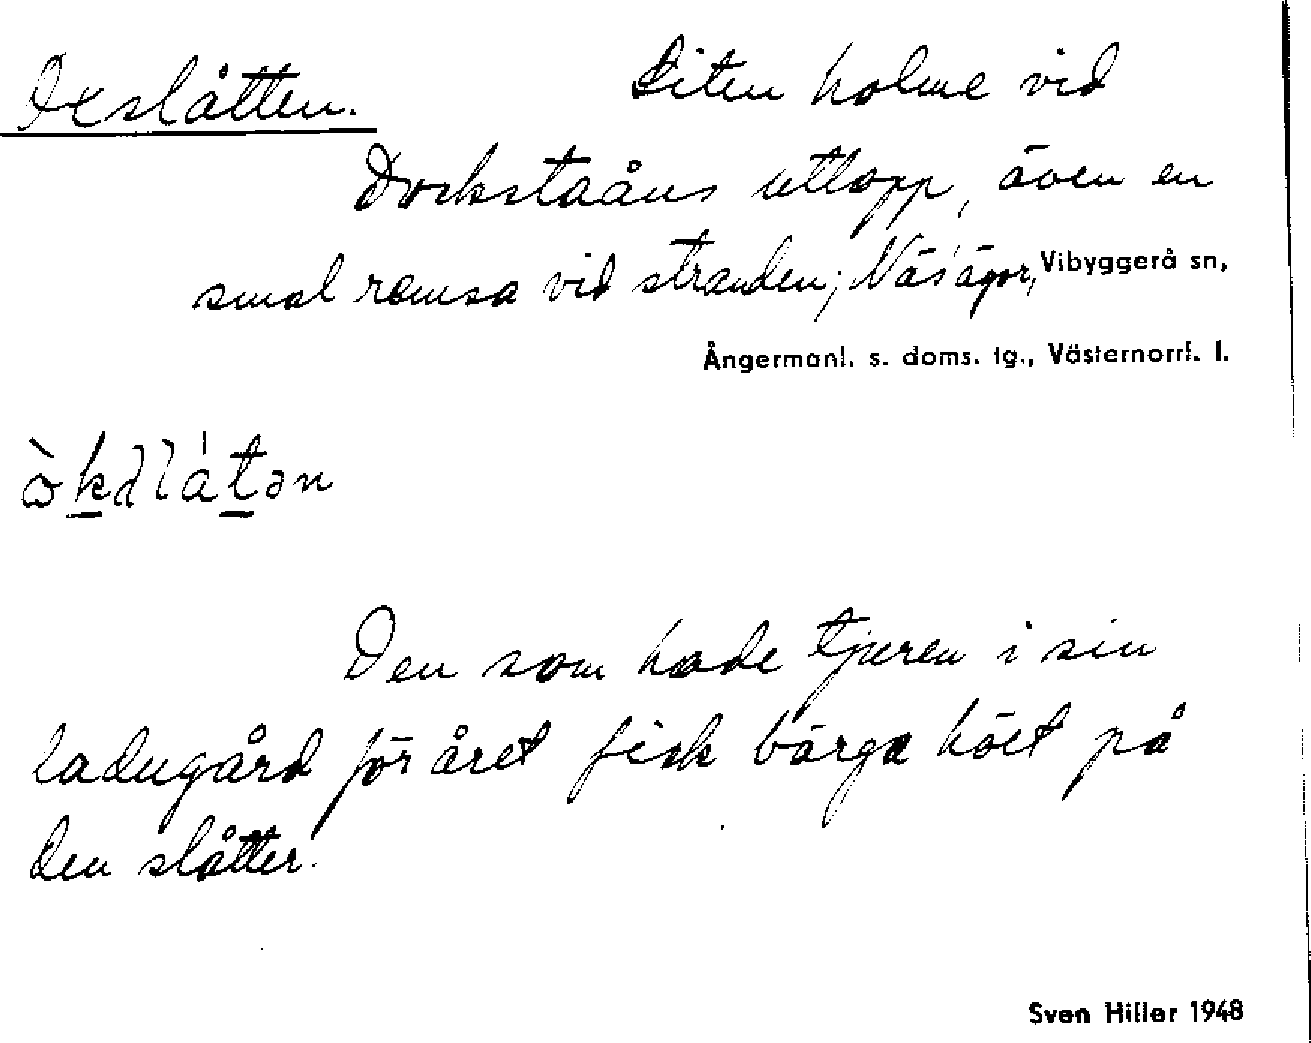 Oxslåtten. Liten holme vid
Dockstaåns utlopp, även en
smal remsa vid stranden; Näs ägor, Vibyggerå sn,
Ångermanl. s. doms. tg., Västernorrl. l.
Den som hade tjuren i sin
ladugård för året fick bärga höet på
den slåtter.
Sven Hiller 1948